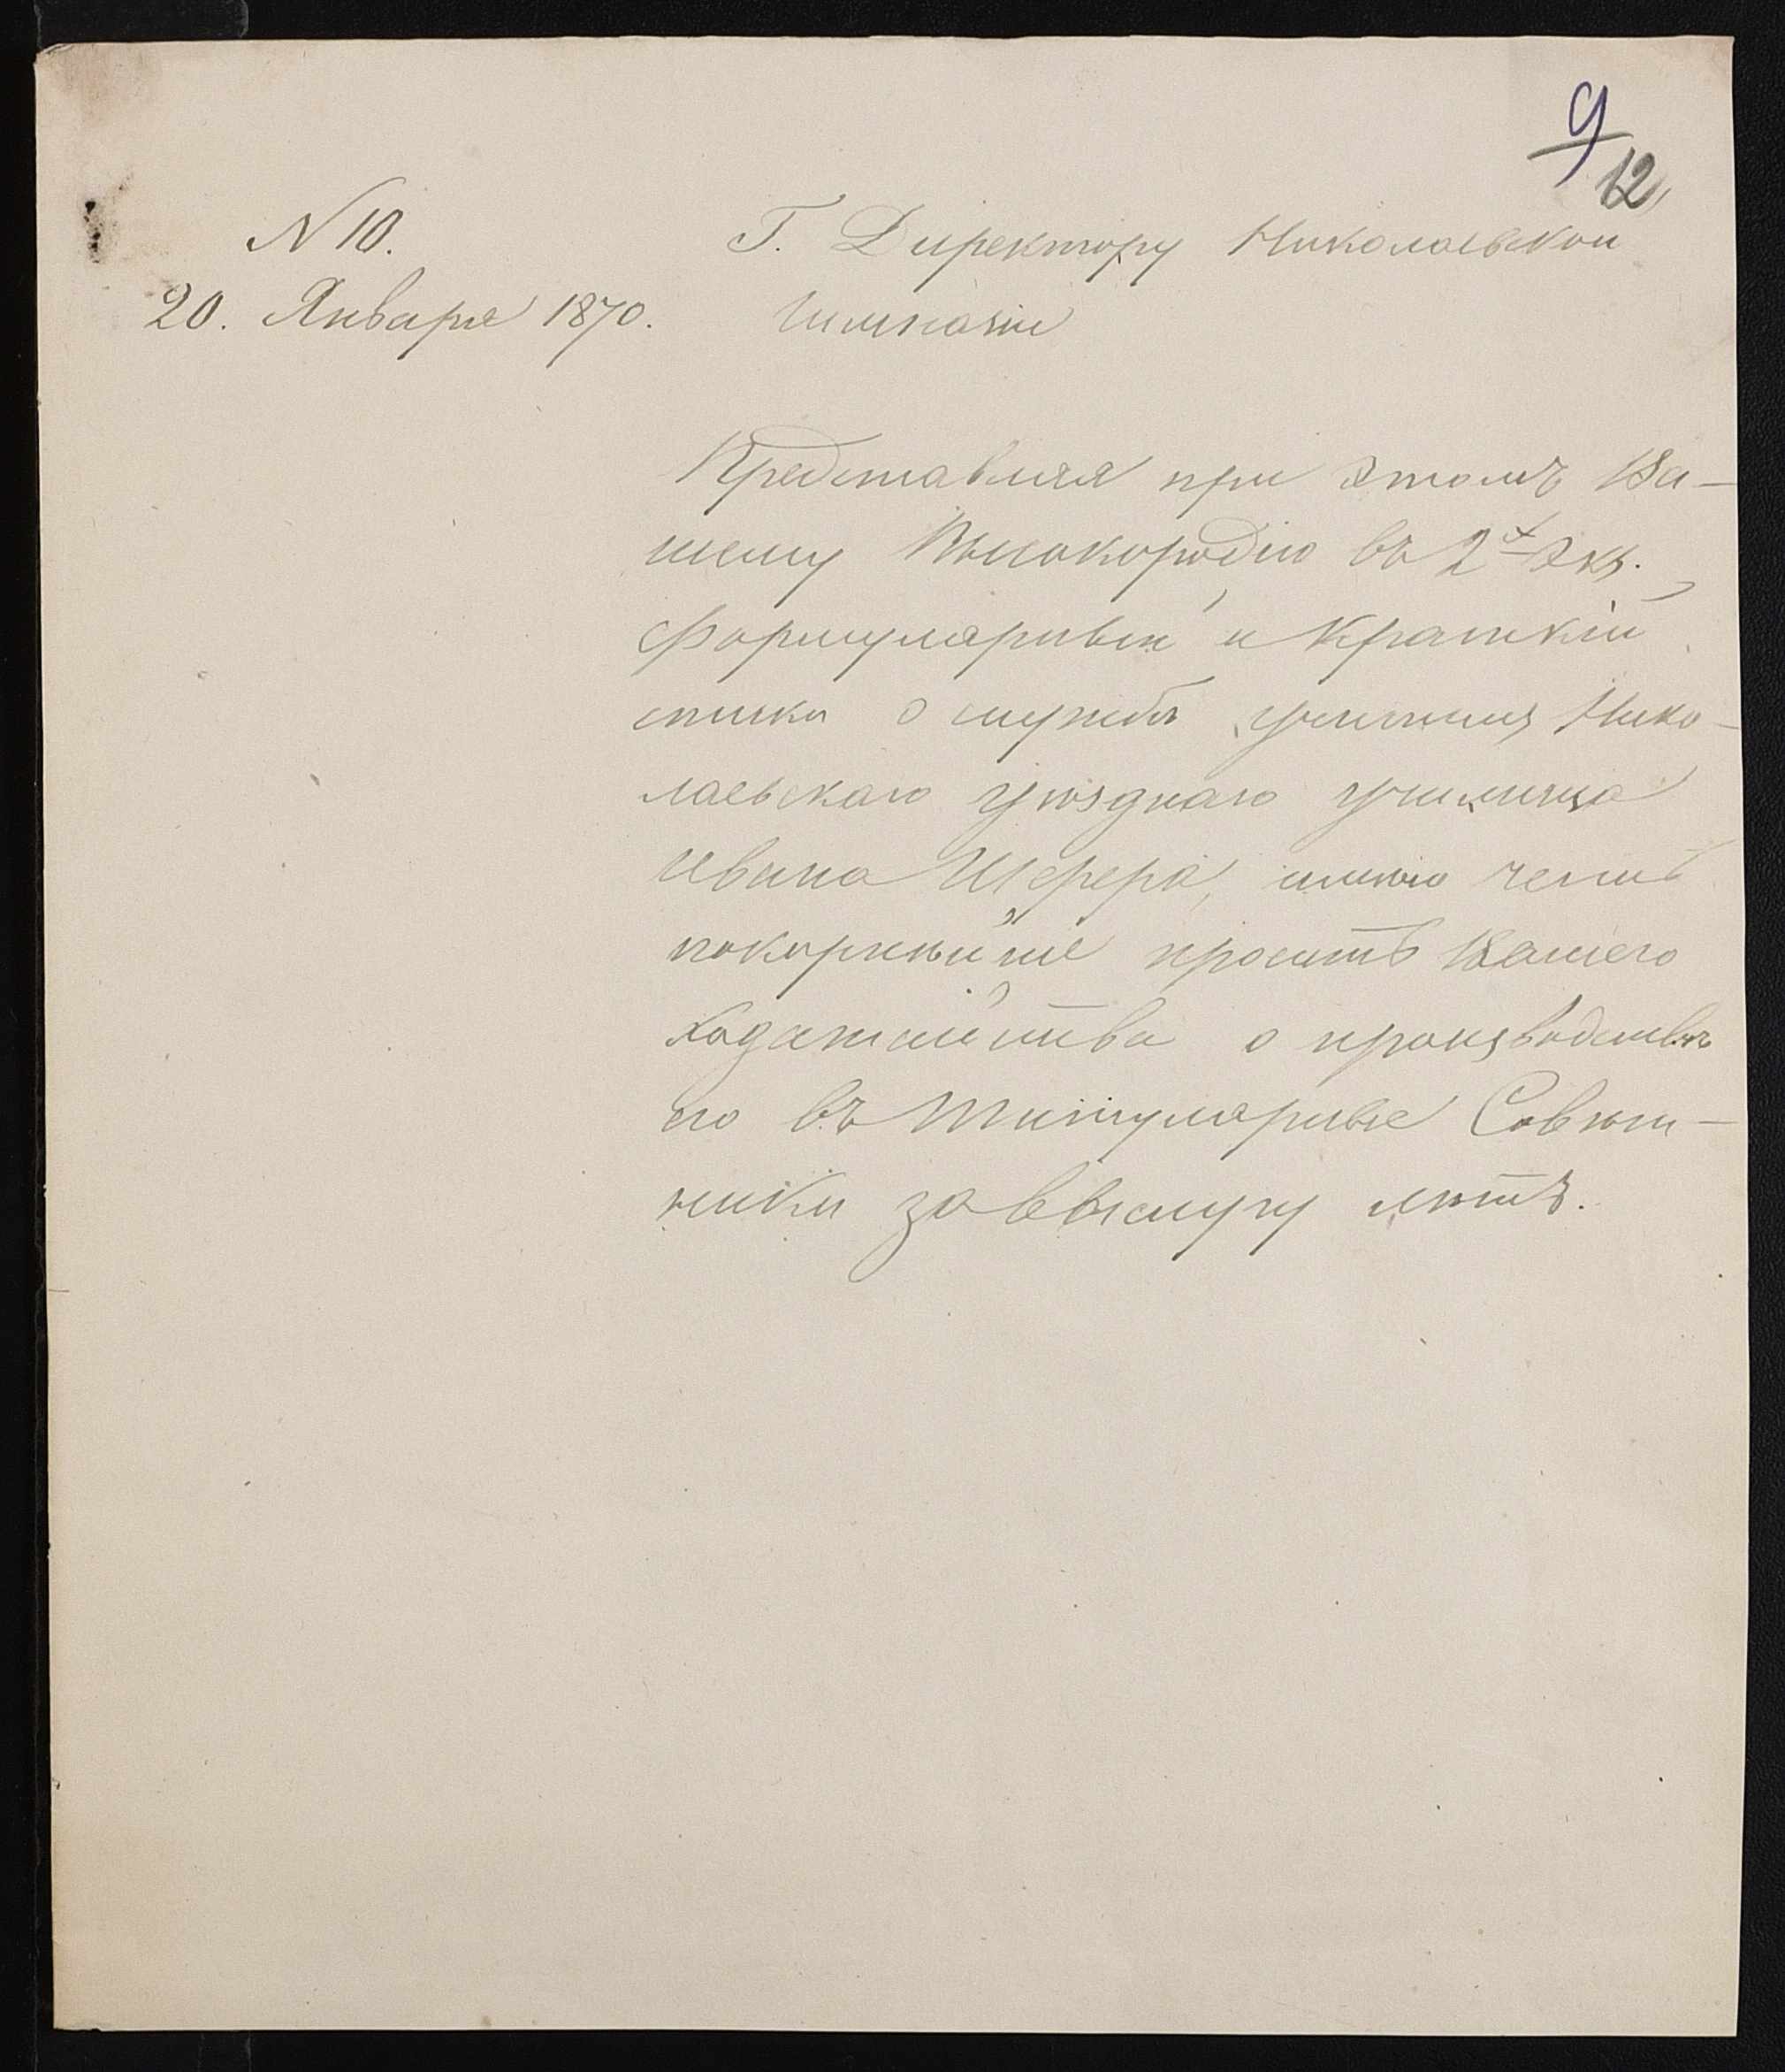 9
12
N 10.
20. Января 1870.
Г. Директору Николаевской
Гимназіи
Представляя при этомъ Ва-
шему Высокородію въ 2х экз.
Формулярный и Краткій
списки о службѣ учителя Нико-
лаевскаго уѣзднаго училища
Ивана Шефера, имѣю честь
покорнѣйше просить Вашего
ходатайства о производствѣ
его въ Титулярные Совѣт-
ники за выслугу лѣтъ.